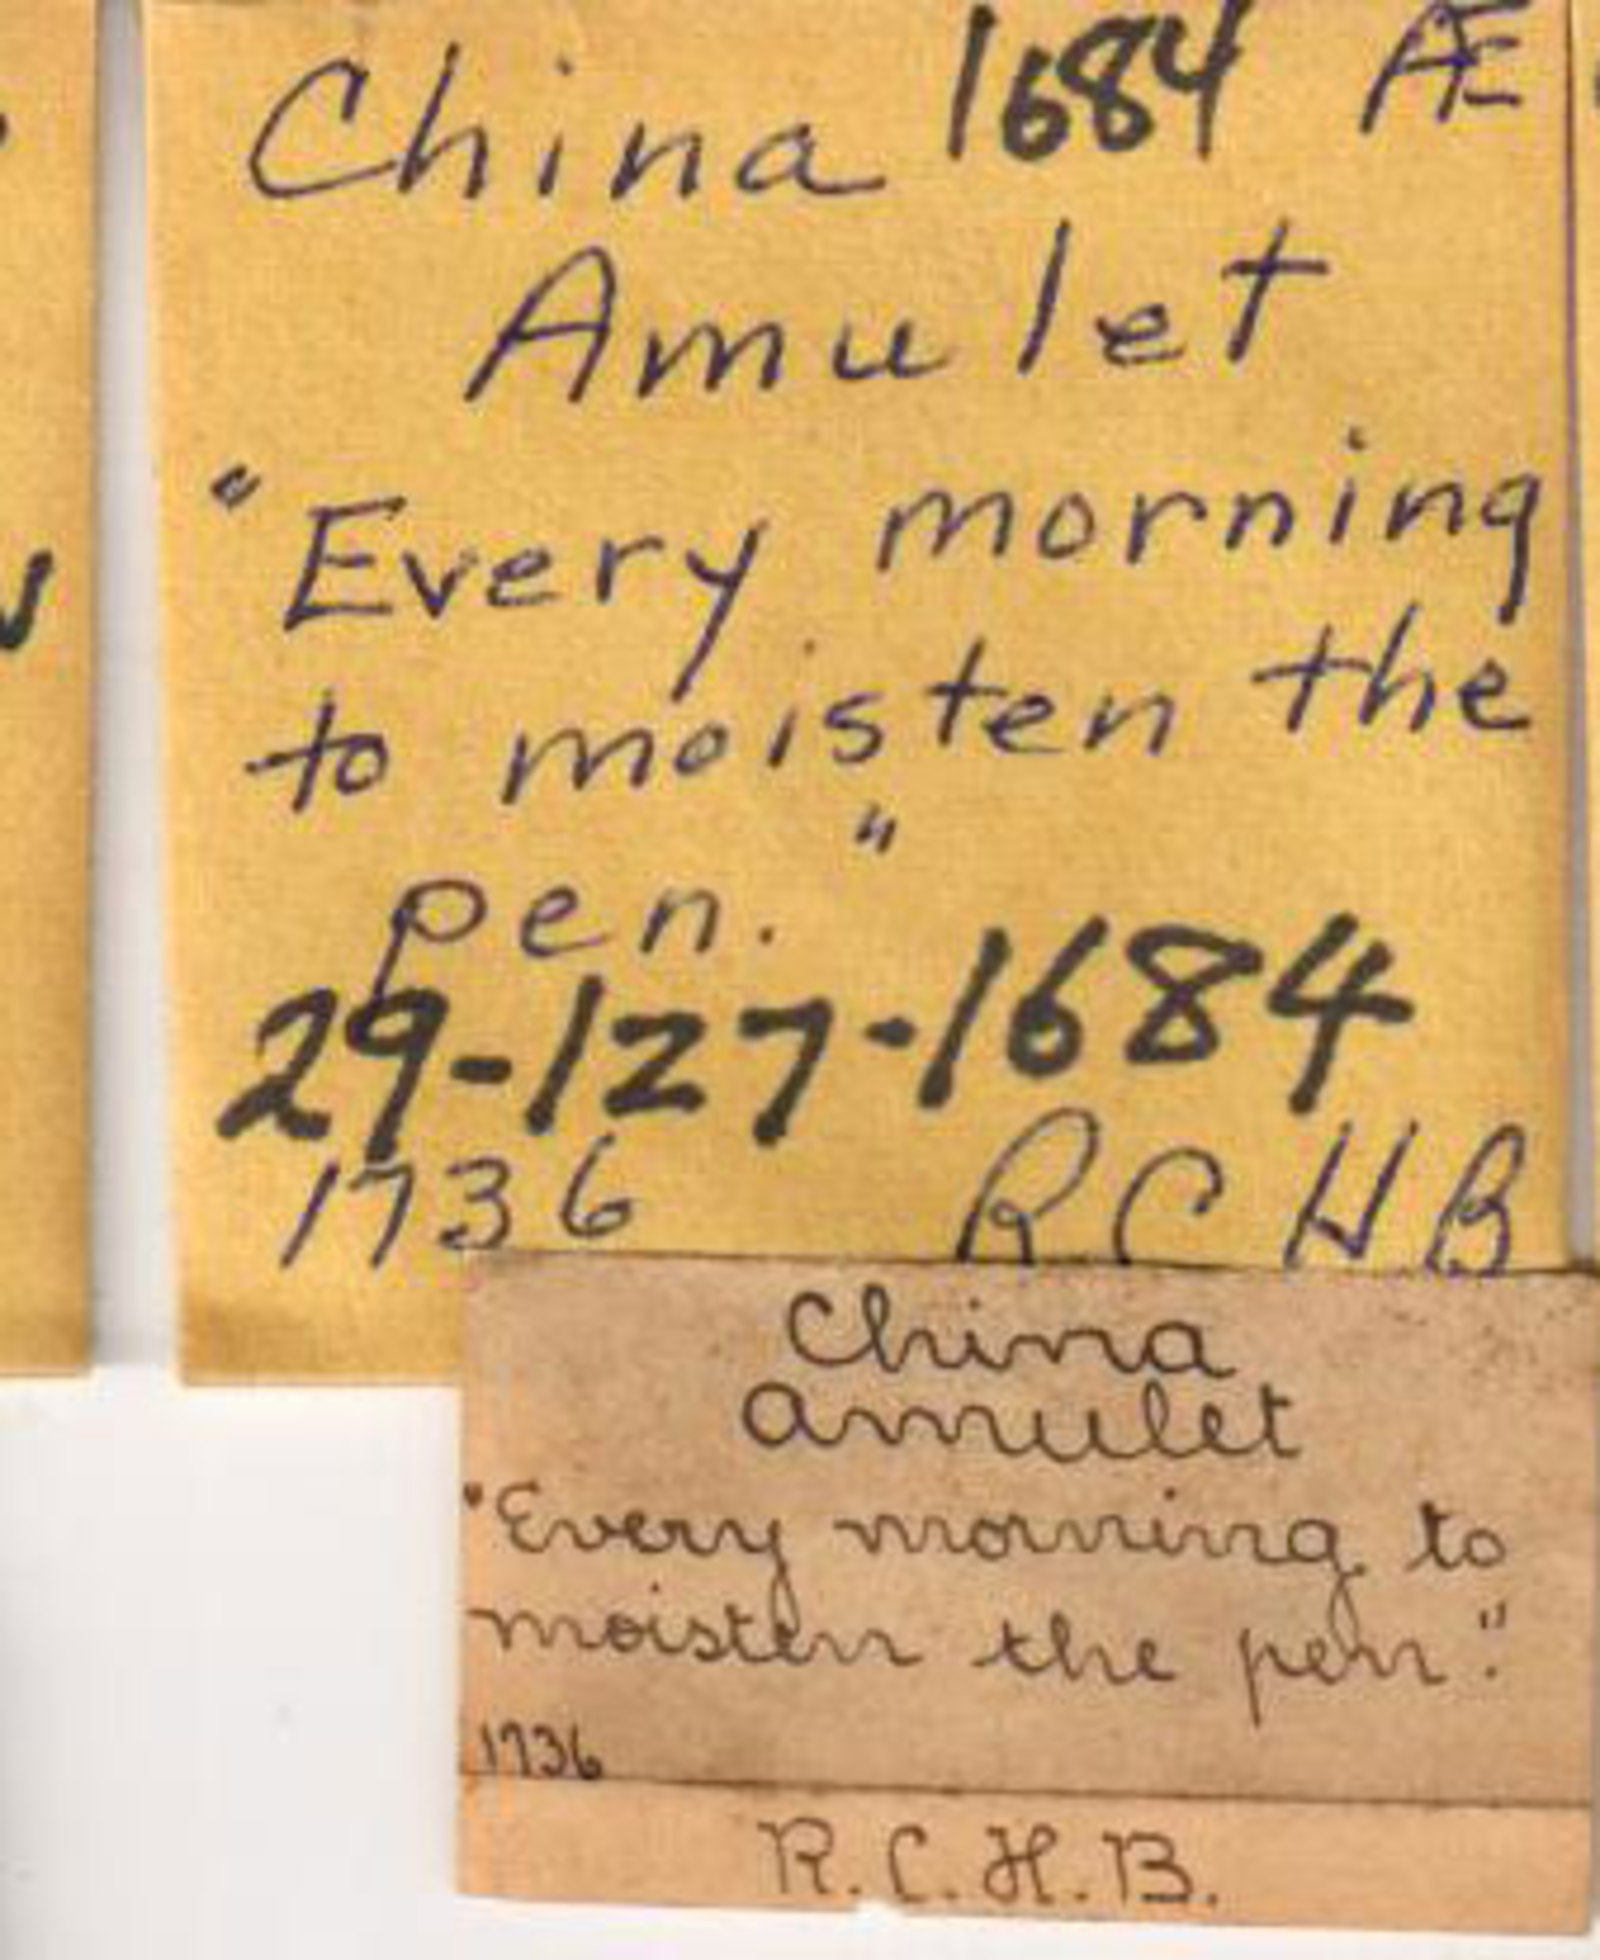 China 1684 Æ
Amulet
"Every morning
to moisten the
pen."
29-127-1684
1736 RCHB
China
Amulet
"Every morning to
moisten the pen."
1736
R.C.H.B.